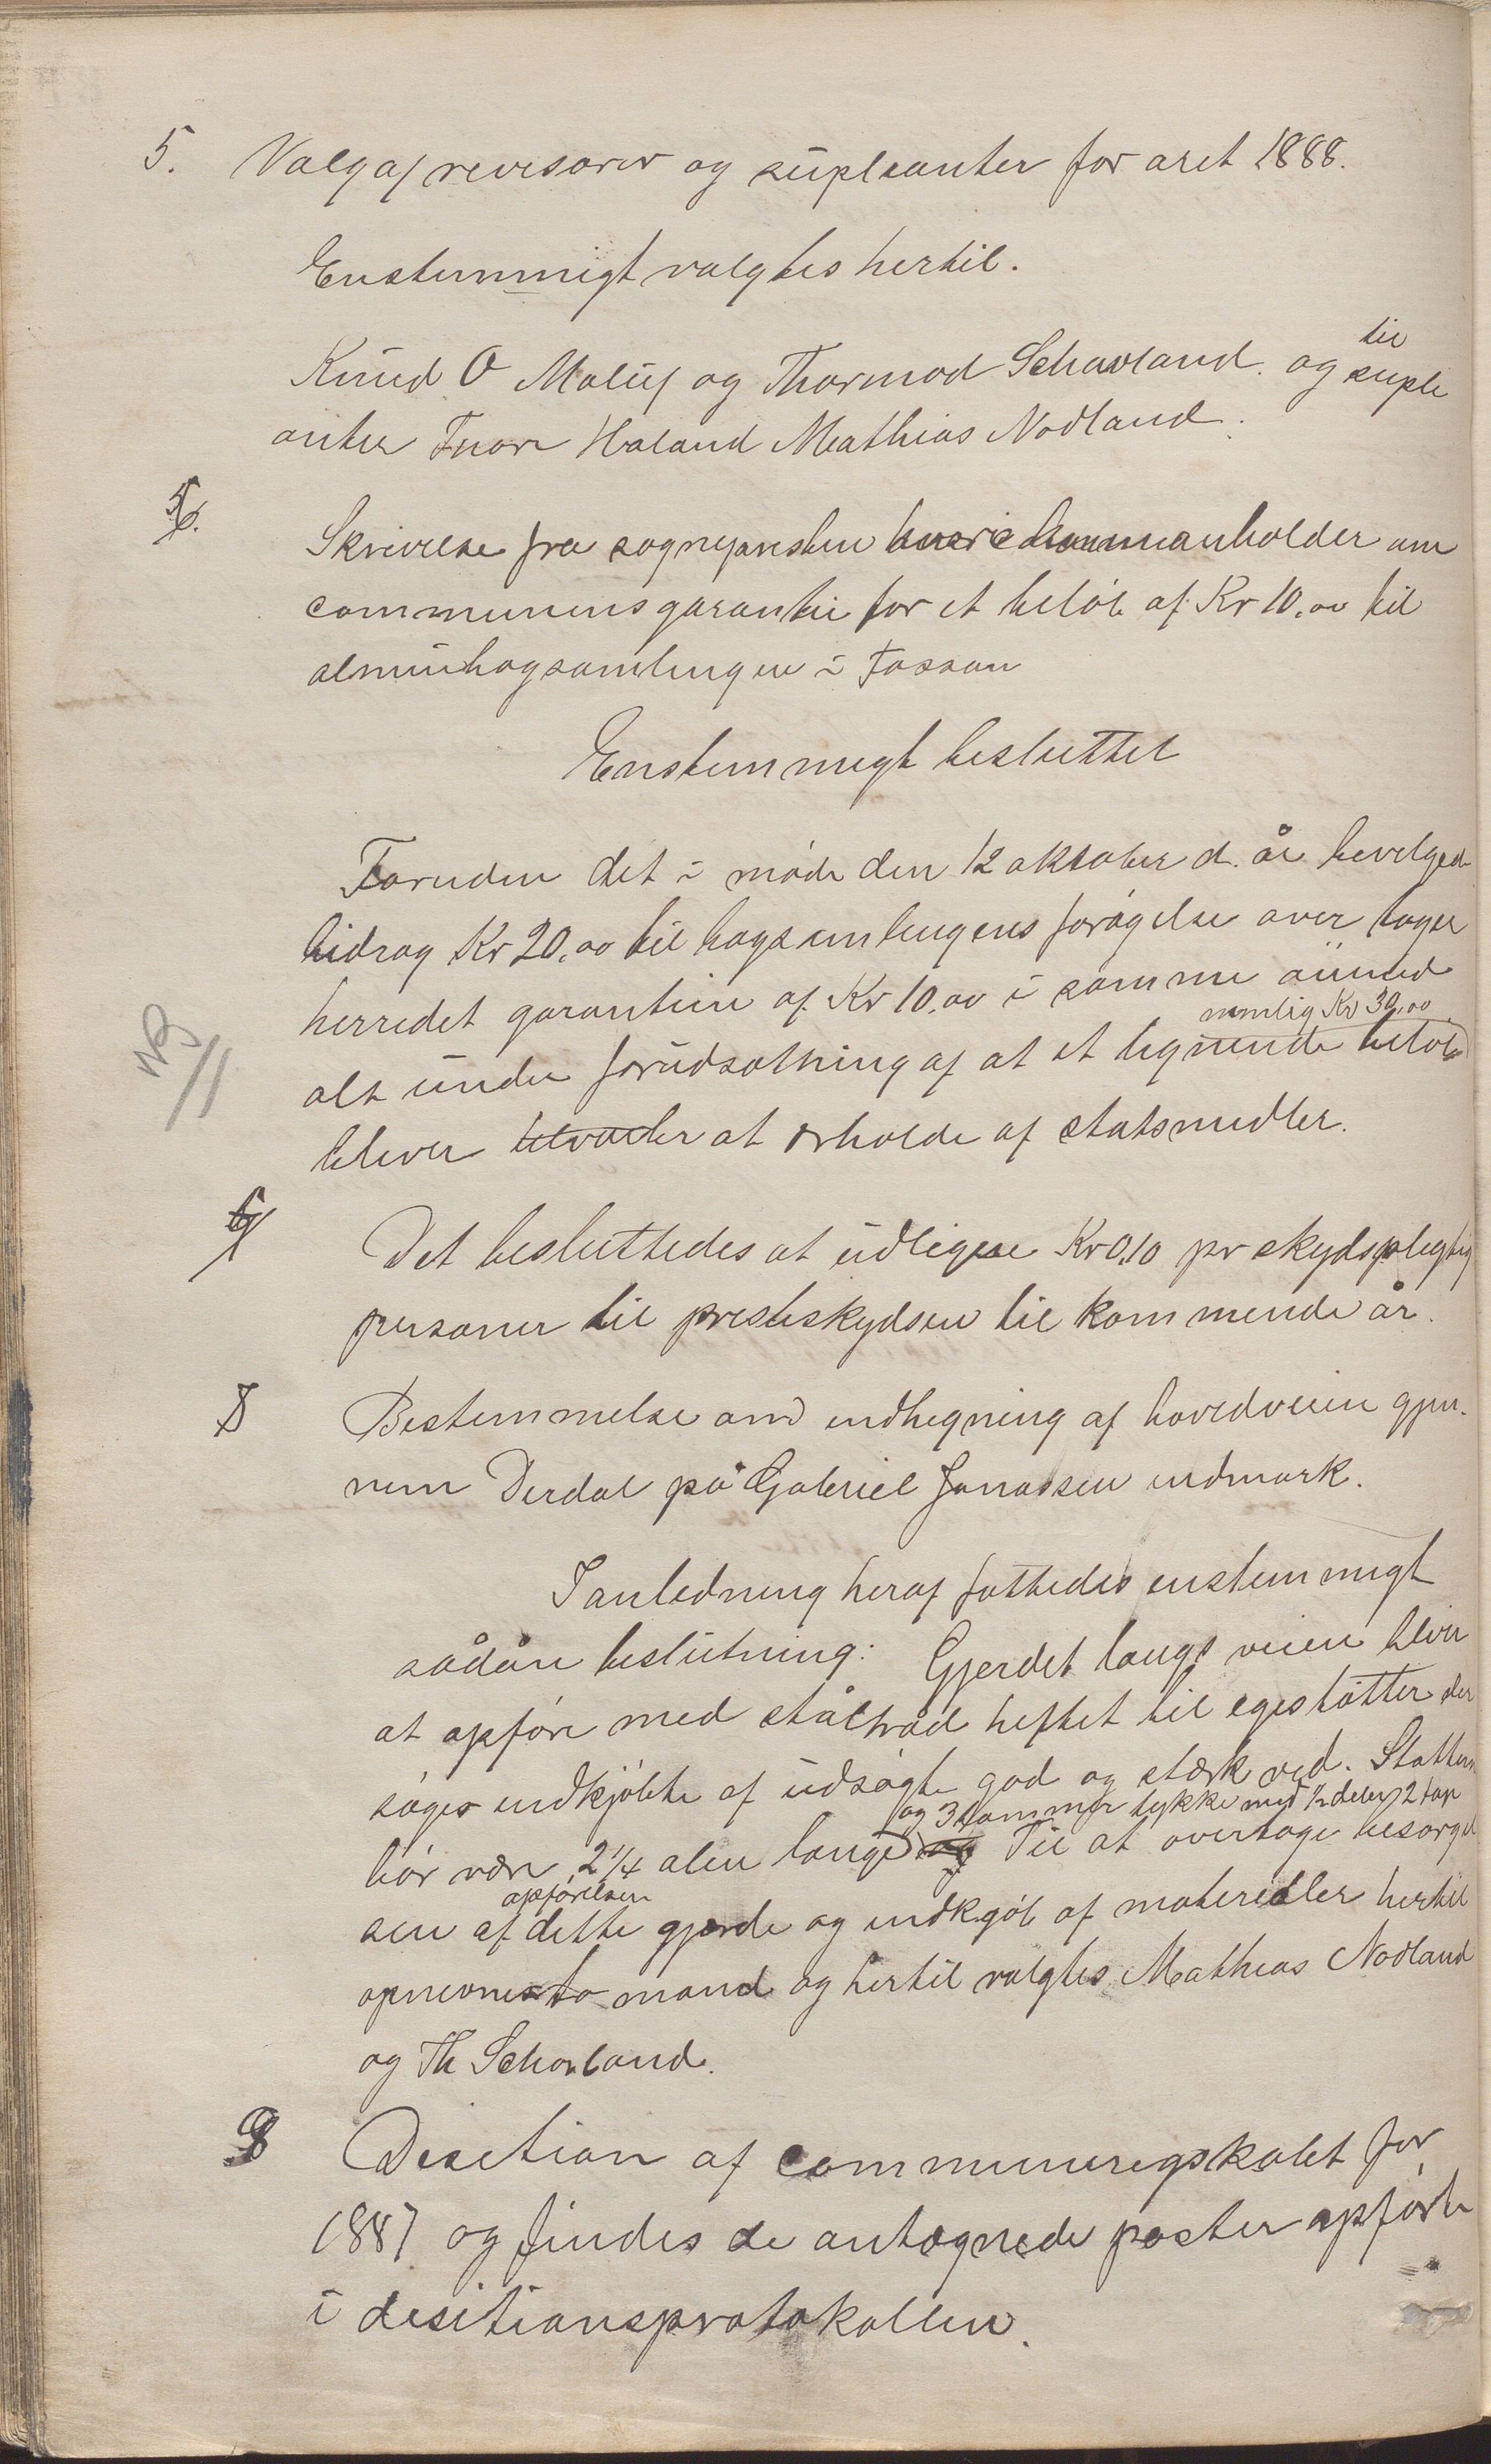 5. Valg af revisorer og supleanter for aret 1888.
Enstemmigt valgtes hertil.
Knud O Maluf og Thormod Schavland. og til suple
anter Tnore Haland Mathias Nodland.
6. Skrivelse fra sognepresten hvori han anholder om
communens garanti for et beløb af Kr 10,00 til
almuebogsamlingen i Fossan
Enstemmigt besluttet
Foruden det i møde den 12 oktober d. år bevilged
bidrag Kr 20,00 til bogsamlingens forøgelse over tager
herredet garantien af Kr 10,00 i samme øiemed
alt under forudsætning af at et lignende beløb
nemlig Kr 30,00
NB
bliver at erholde af statsmidler.
7 Det besluttedes at udligne Kr 0,10 pr skydspligtig
personer til presteskydsen til kommende år.
8 Bestemmelse om indhegning af hovedveien gjen-
nem Dirdal på Gabriel Jonassen indmark.
I anledning heraf fattedes enstemmigt
sådån beslutning: Gjerdet langs veien bliver
at opføre med ståltråd heftet til egestøtter der
søges indkjøbte af udsøgte god og stærk ved. Støtterne
bør være 2 1/4 alen lange og Til at overtage besørgel
og 3 tommer tykke
sen af opførelsen dette gjerde og indkjøb af materialler hertil
opnevnes to mand og hertil valgtes Mathias Nodland
og Th Schavland.
9 Decition af communeregskabet for
1887 og findes de antegnede poster opførte
i desitionsprotokollen.